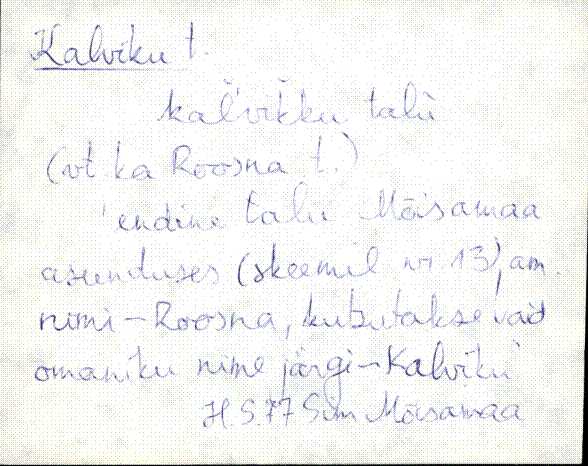 Kalviku t.
kal'vikku talu
(vt. ka Roosna t.)
'endine talu Mõisamaa
asunduses (skeemil nr 13), am.
nimi - Roosna, kutsutakse vaid
omaniku nime järgi - Kalviku"
H. S. 77 Sim Mõisamaa